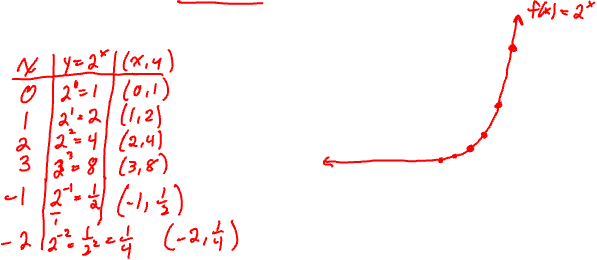 f(x) = 2^x
x | y = 2^x | (x, y)
0 | 2^0 = 1 | (0, 1)
1 | 2^1 = 2 | (1, 2)
2 | 2^2 = 4 | (2, 4)
3 | 2^3 = 8 | (3, 8)
-1 | 2^-1/1 = 1/2 | (-1, 1/2)
-2 | 2^-2 = 1/2^2 = 1/4 (-2, 1/4)